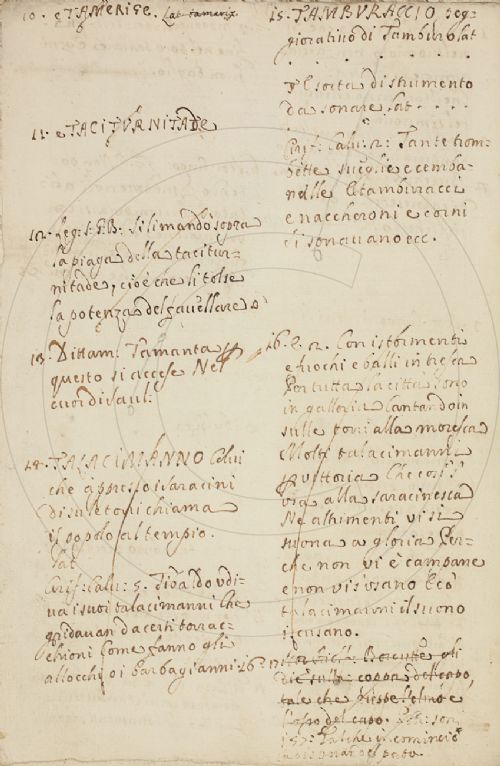 10. e TAMERICE. Lat. tamarix
11. e TACITURNITADE
12. leg: S. G. B: si li mandò sopra
la piaga della tacitur-
nitade, cioè che li tolse
la potenza del favellare
13. Dittam: Tamanta
questo si accese Nel
cuor di Saul:
14. TALACIMANNO Colui
che appresso i saracini
di su le torri chiama
il popolo al tempio.
Lat
Cirif: Calu: 5. Tibaldo udi-
va i suoi talacimanni che
gridavan da certi torrac-
chioni Come fanno gli
allocchi o i barbagianni
15. TAMBURACCIO peg-
giorativo di Tamburo, Lat
. . . . .
Pl sorta di strumento
da sonare Lat. . .
Cirif: Calv: 2: Tante trom-
bette sveglie e cemba-
nelle E tamburacci
e naccheroni e corni
si sonavano ecc.
16. E. 2. Con istormenti
e fuochi e balli in tresca
Per tutta la città sono
in galloria Cantando in
sulle torri alla moresca
Molti talacimanni
vittoria Che così s'
usa alla saracinesca
Ne altrimenti vi si
suona a gloria Per-
che non vi è campane
e non vi s'usano E co'
talacimanni il suono
scusano.
16. 17
gli
diè sulla coppa del capo,
tale che
l'osso del capo.